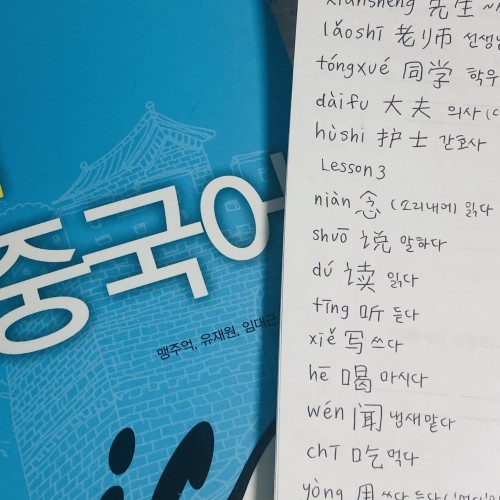 중국어
맹주억, 유재원, 임대근
xiānsheng 先生
lǎoshī 老师 선생님
tóngxué 同学 학우
dàifu 大夫 의사
hùshi 护士 간호사
Lesson 3
niàn 念 (소리내어) 읽다
shuō 说 말하다
dú 读 읽다
tīng 听 듣다
xiě 写 쓰다
hē 喝 마시다
wén 闻 냄새맡다
chī 吃 먹다
yòng 用 쓰다, 들다